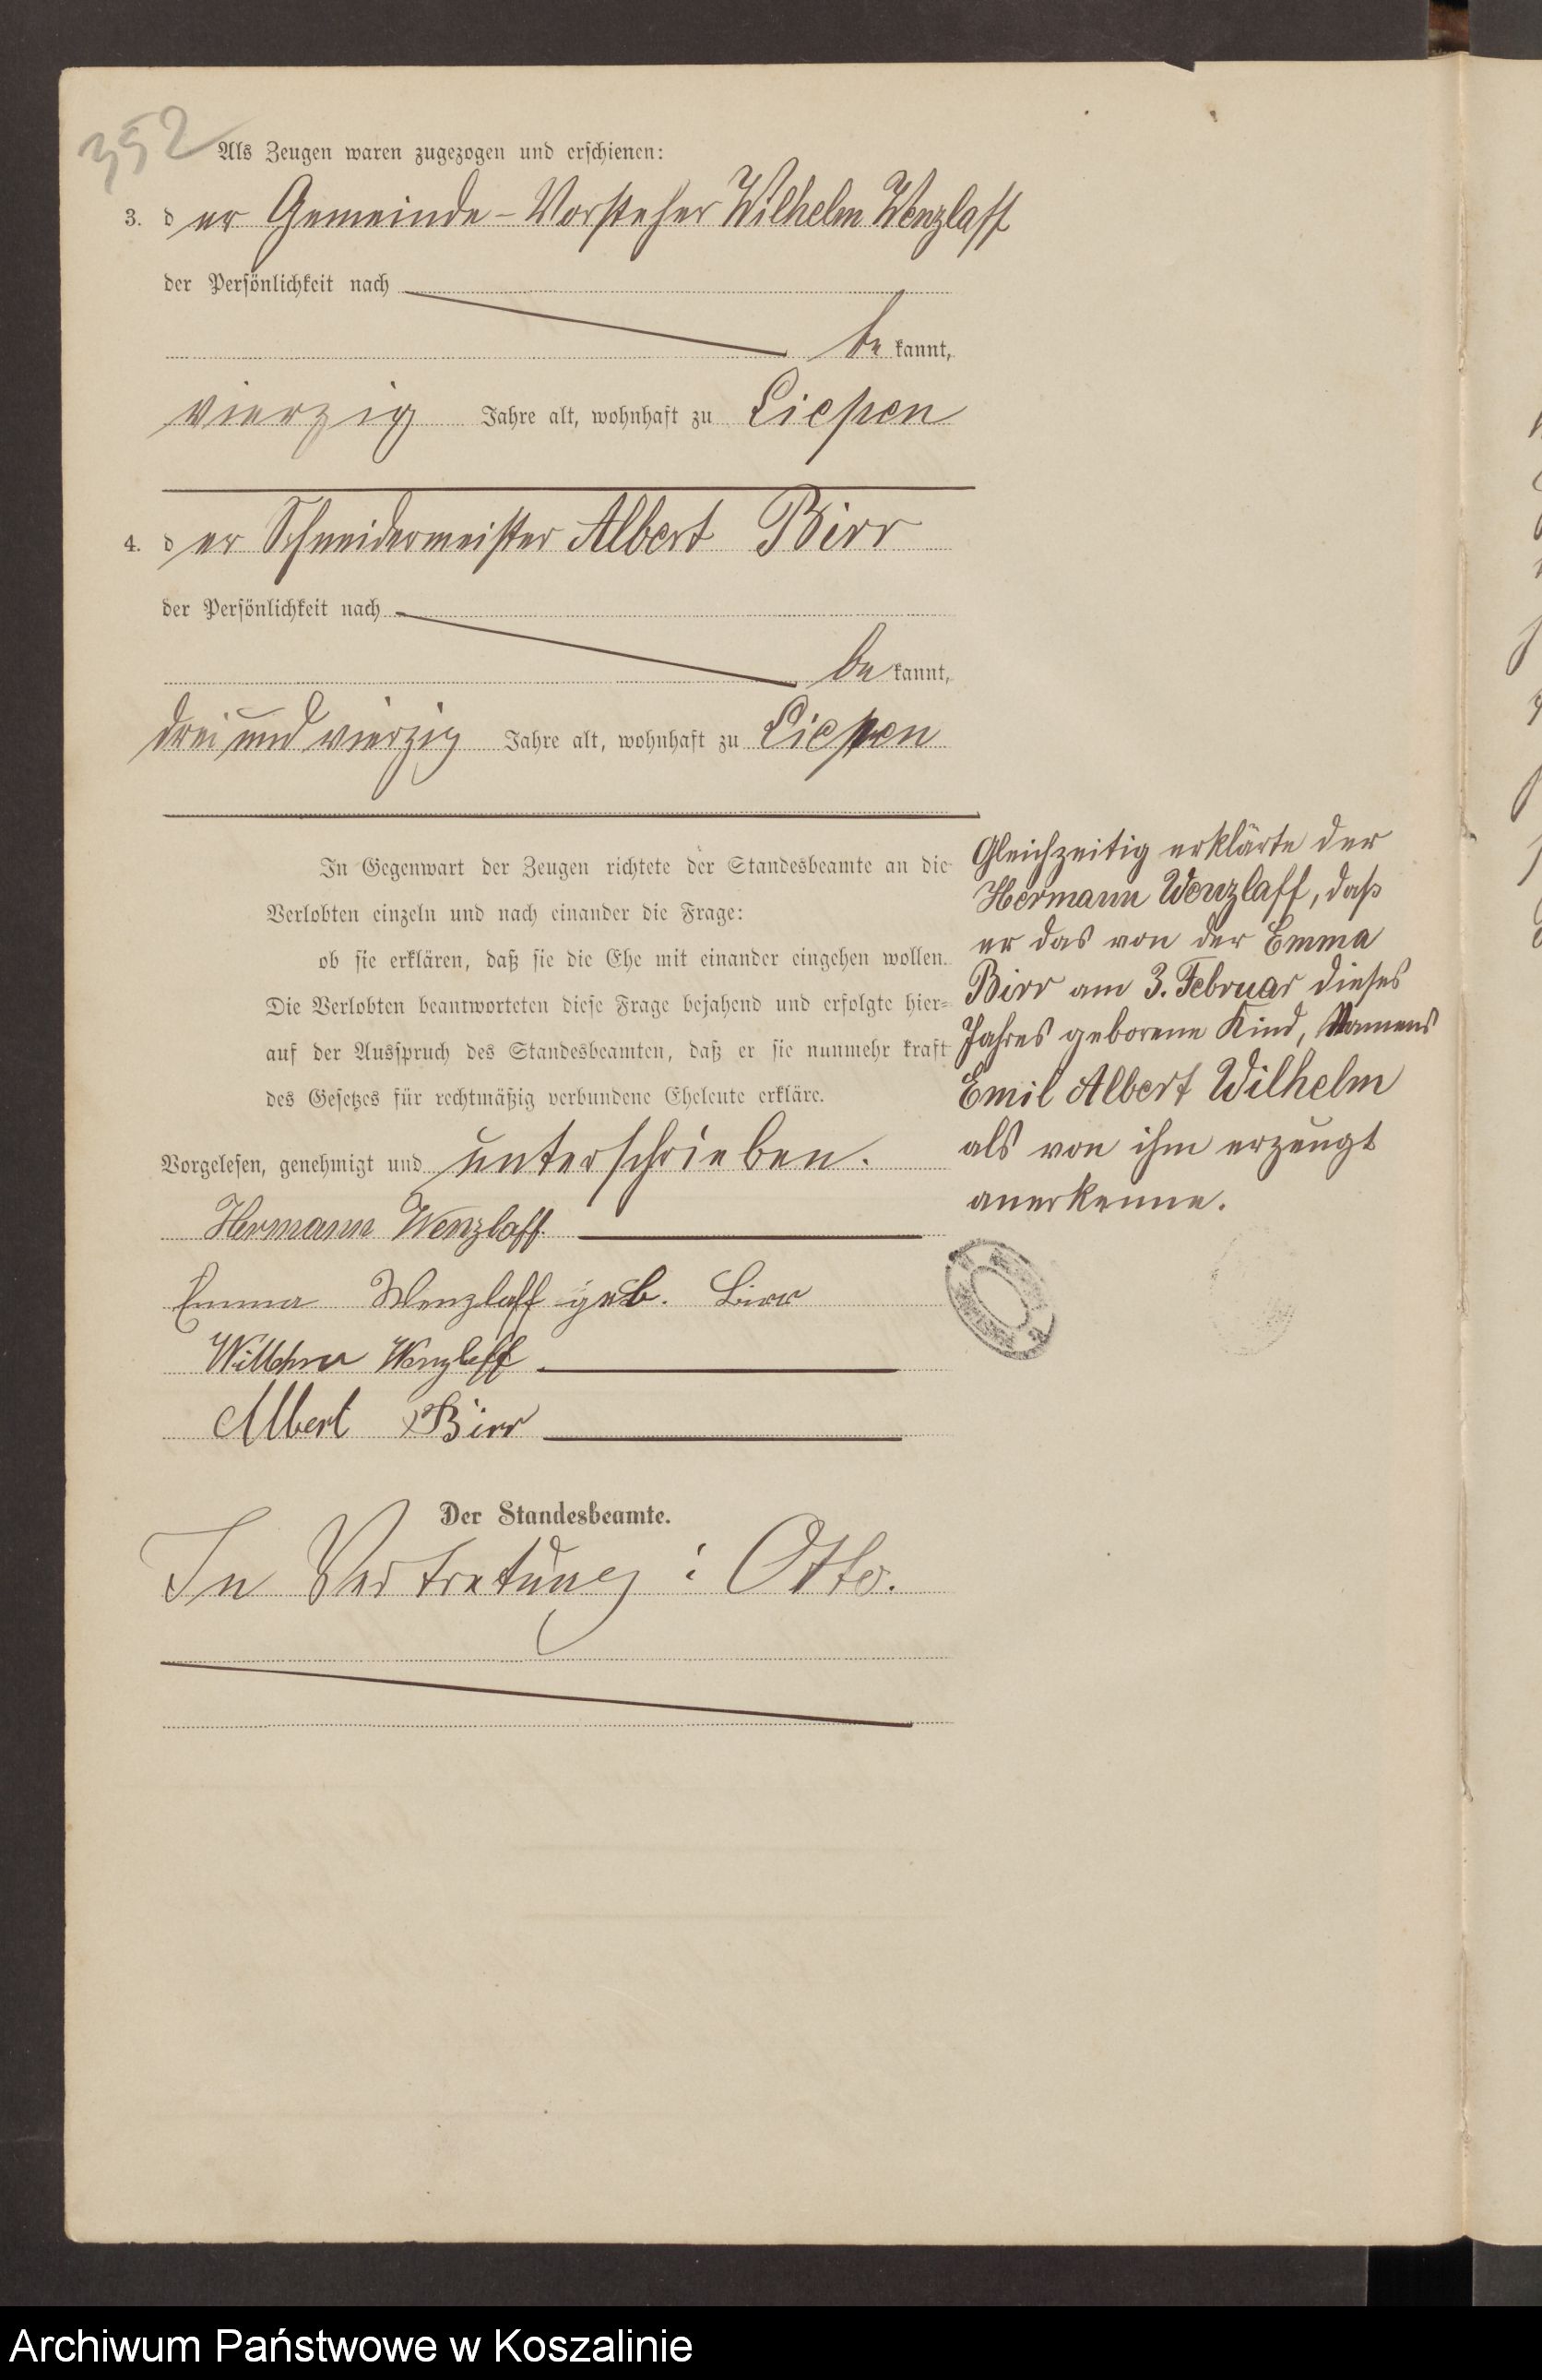 352
Als Zeugen waren zugezogen und erschienen:
3. der Gemeinde-Vorsteher Wilhelm Wenzlaff
der Persönlichkeit nach
bekannt,
vierzig Jahre alt, wohnhaft zu Liepen
4. der Schneidermeister Albert Birr
der Persönlichkeit nach
bekannt,
drei und vierzig Jahre alt, wohnhaft zu Liepen
In Gegenwart der Zeugen richtete der Standesbeamte an die
Verlobten einzeln und nach einander die Frage:
ob sie erklären, daß sie die Ehe mit einander eingehen wollen.
Die Verlobten beantworteten diese Frage bejahend und erfolgte hier-
auf der Ausspruch des Standesbeamten, daß er sie nunmehr kraft
des Gesetzes für rechtmäßig verbundene Eheleute erkläre.
Vorgelesen, genehmigt und unterschrieben.
Hermann Wenzlaff
Emma Wenzlaff geb. Birr
Wilhelm Wenzlaff
Albert Birr
Der Standesbeamte.
In Vertretung: Otto.
Gleichzeitig erklärte der
Hermann Wenzlaff, daß
er das von der Emma
Birr am 3. Februar dieses
Jahres geborene Kind, Namens
Emil Albert Wilhelm
als von ihm erzeugt
anerkenne.
Archiwum Państwowe w Koszalinie